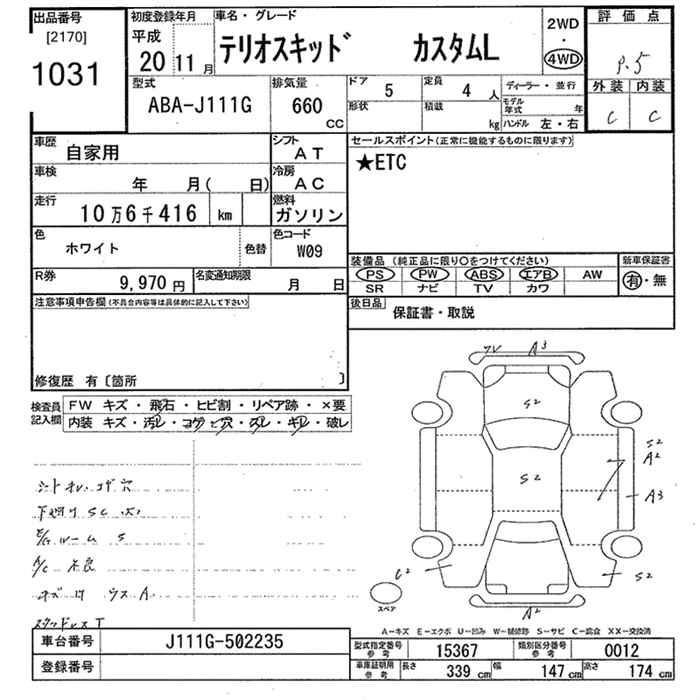 出品番号 初度登録年月 車名・グレード 2WD 評価点
[2170] 平成
1031 20 11月 テリオスキッド カスタムL 4WD P.5
型式 排気量 ドア 5 定員 4人 ディーラー・並行 外装 内装
ABA-J111G 660 CC 形状 積載 kg モデル年式 年 C C
ハンドル 左・右
車歴 自家用 シフト AT セールスポイント(正常に機能するものに限ります)
車検 年 月( 日) 冷房 AC ★ETC
走行 10万6千416 km 燃料 ガソリン
色 ホワイト 色替 色コード W09
装備品 (純正品に限り○をつけてください) 新車保証書
R券 9,970円 名変通知期限 月 日 PS PW ABS エアB AW 有・無
SR ナビ TV カワ
注意事項申告欄(不具合内容等は具体的に記入して下さい) 後日品 保証書・取説
修復歴 有〔箇所 〕
検査員記入欄 FW キズ・飛石・ヒビ割・リペア跡・×要
内装 キズ・汚レ・コゲ・穴・スレ・キレ・破レ
A3
S2
S2
A2
S2
A3
C2
S2
A2
シートオレ.コゲ穴
下廻り SC
ルーム S
A/C 不良
ウス A
スタッドレス T
スペア
A-キズ E-エクボ U-凹み W-補修跡 S-サビ C-腐食 XX-交換済
車台番号 J111G-502235 型式指定番号 参考 15367 類別区分番号 参考 0012
登録番号 車庫証明用 参考 長さ 339 cm 幅 147 cm 高さ 174 cm